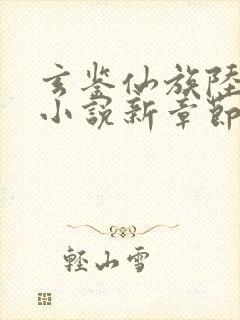 玄鉴仙族陸
小說新章節
輕山雪